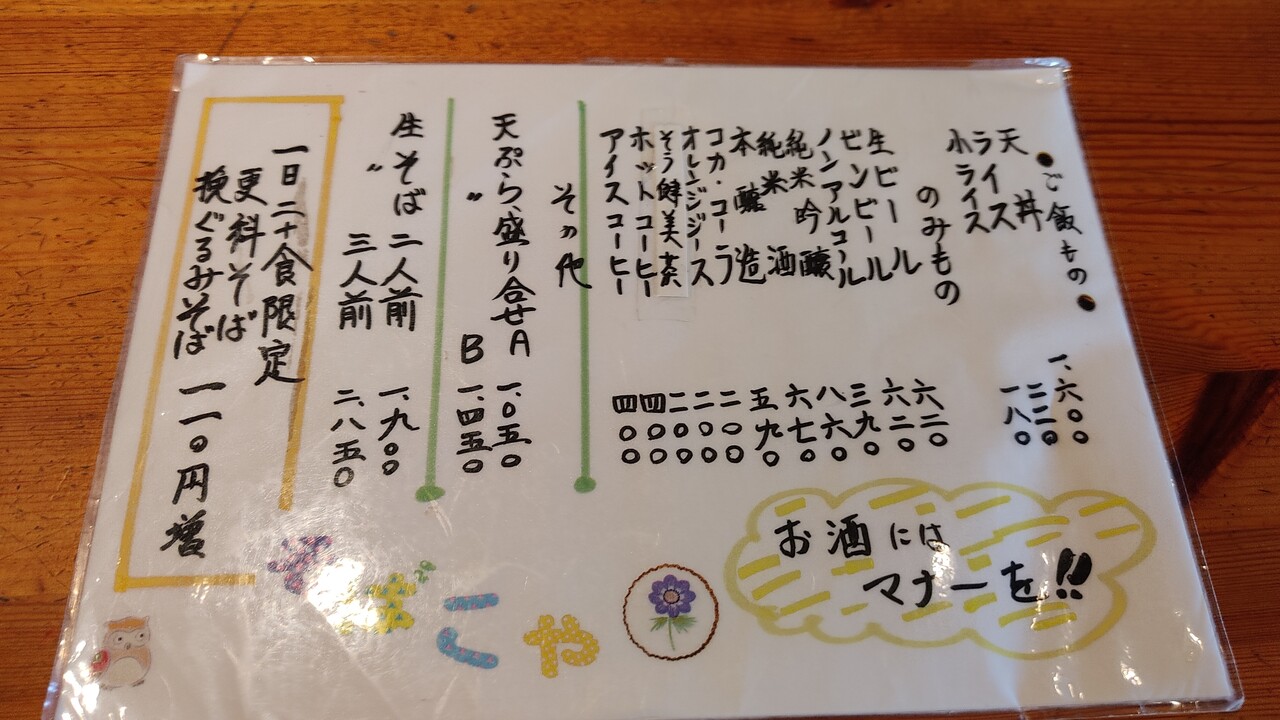 ●ご飯もの●
天丼 一、六〇〇
ライス 二二〇
小ライス 一八〇
のみもの
生ビール 六二〇
ビンビール 六二〇
ノンアルコール 三九〇
純米吟醸 八六〇
純米酒 六七〇
本醸造 五九〇
コカ・コーラ 二〇〇
オレンジジュース 二〇〇
そう健美茶 二〇〇
ホットコーヒー 四〇〇
アイスコーヒー 四〇〇
その他
天ぷら盛り合せA 一、〇五〇
〃 B 一、四五〇
生そば 二人前 一、九〇〇
〃 三人前 二、八五〇
一日二十食限定
更科そば
挽ぐるみそば 一一〇円増
お酒には
マナーを!!
こや